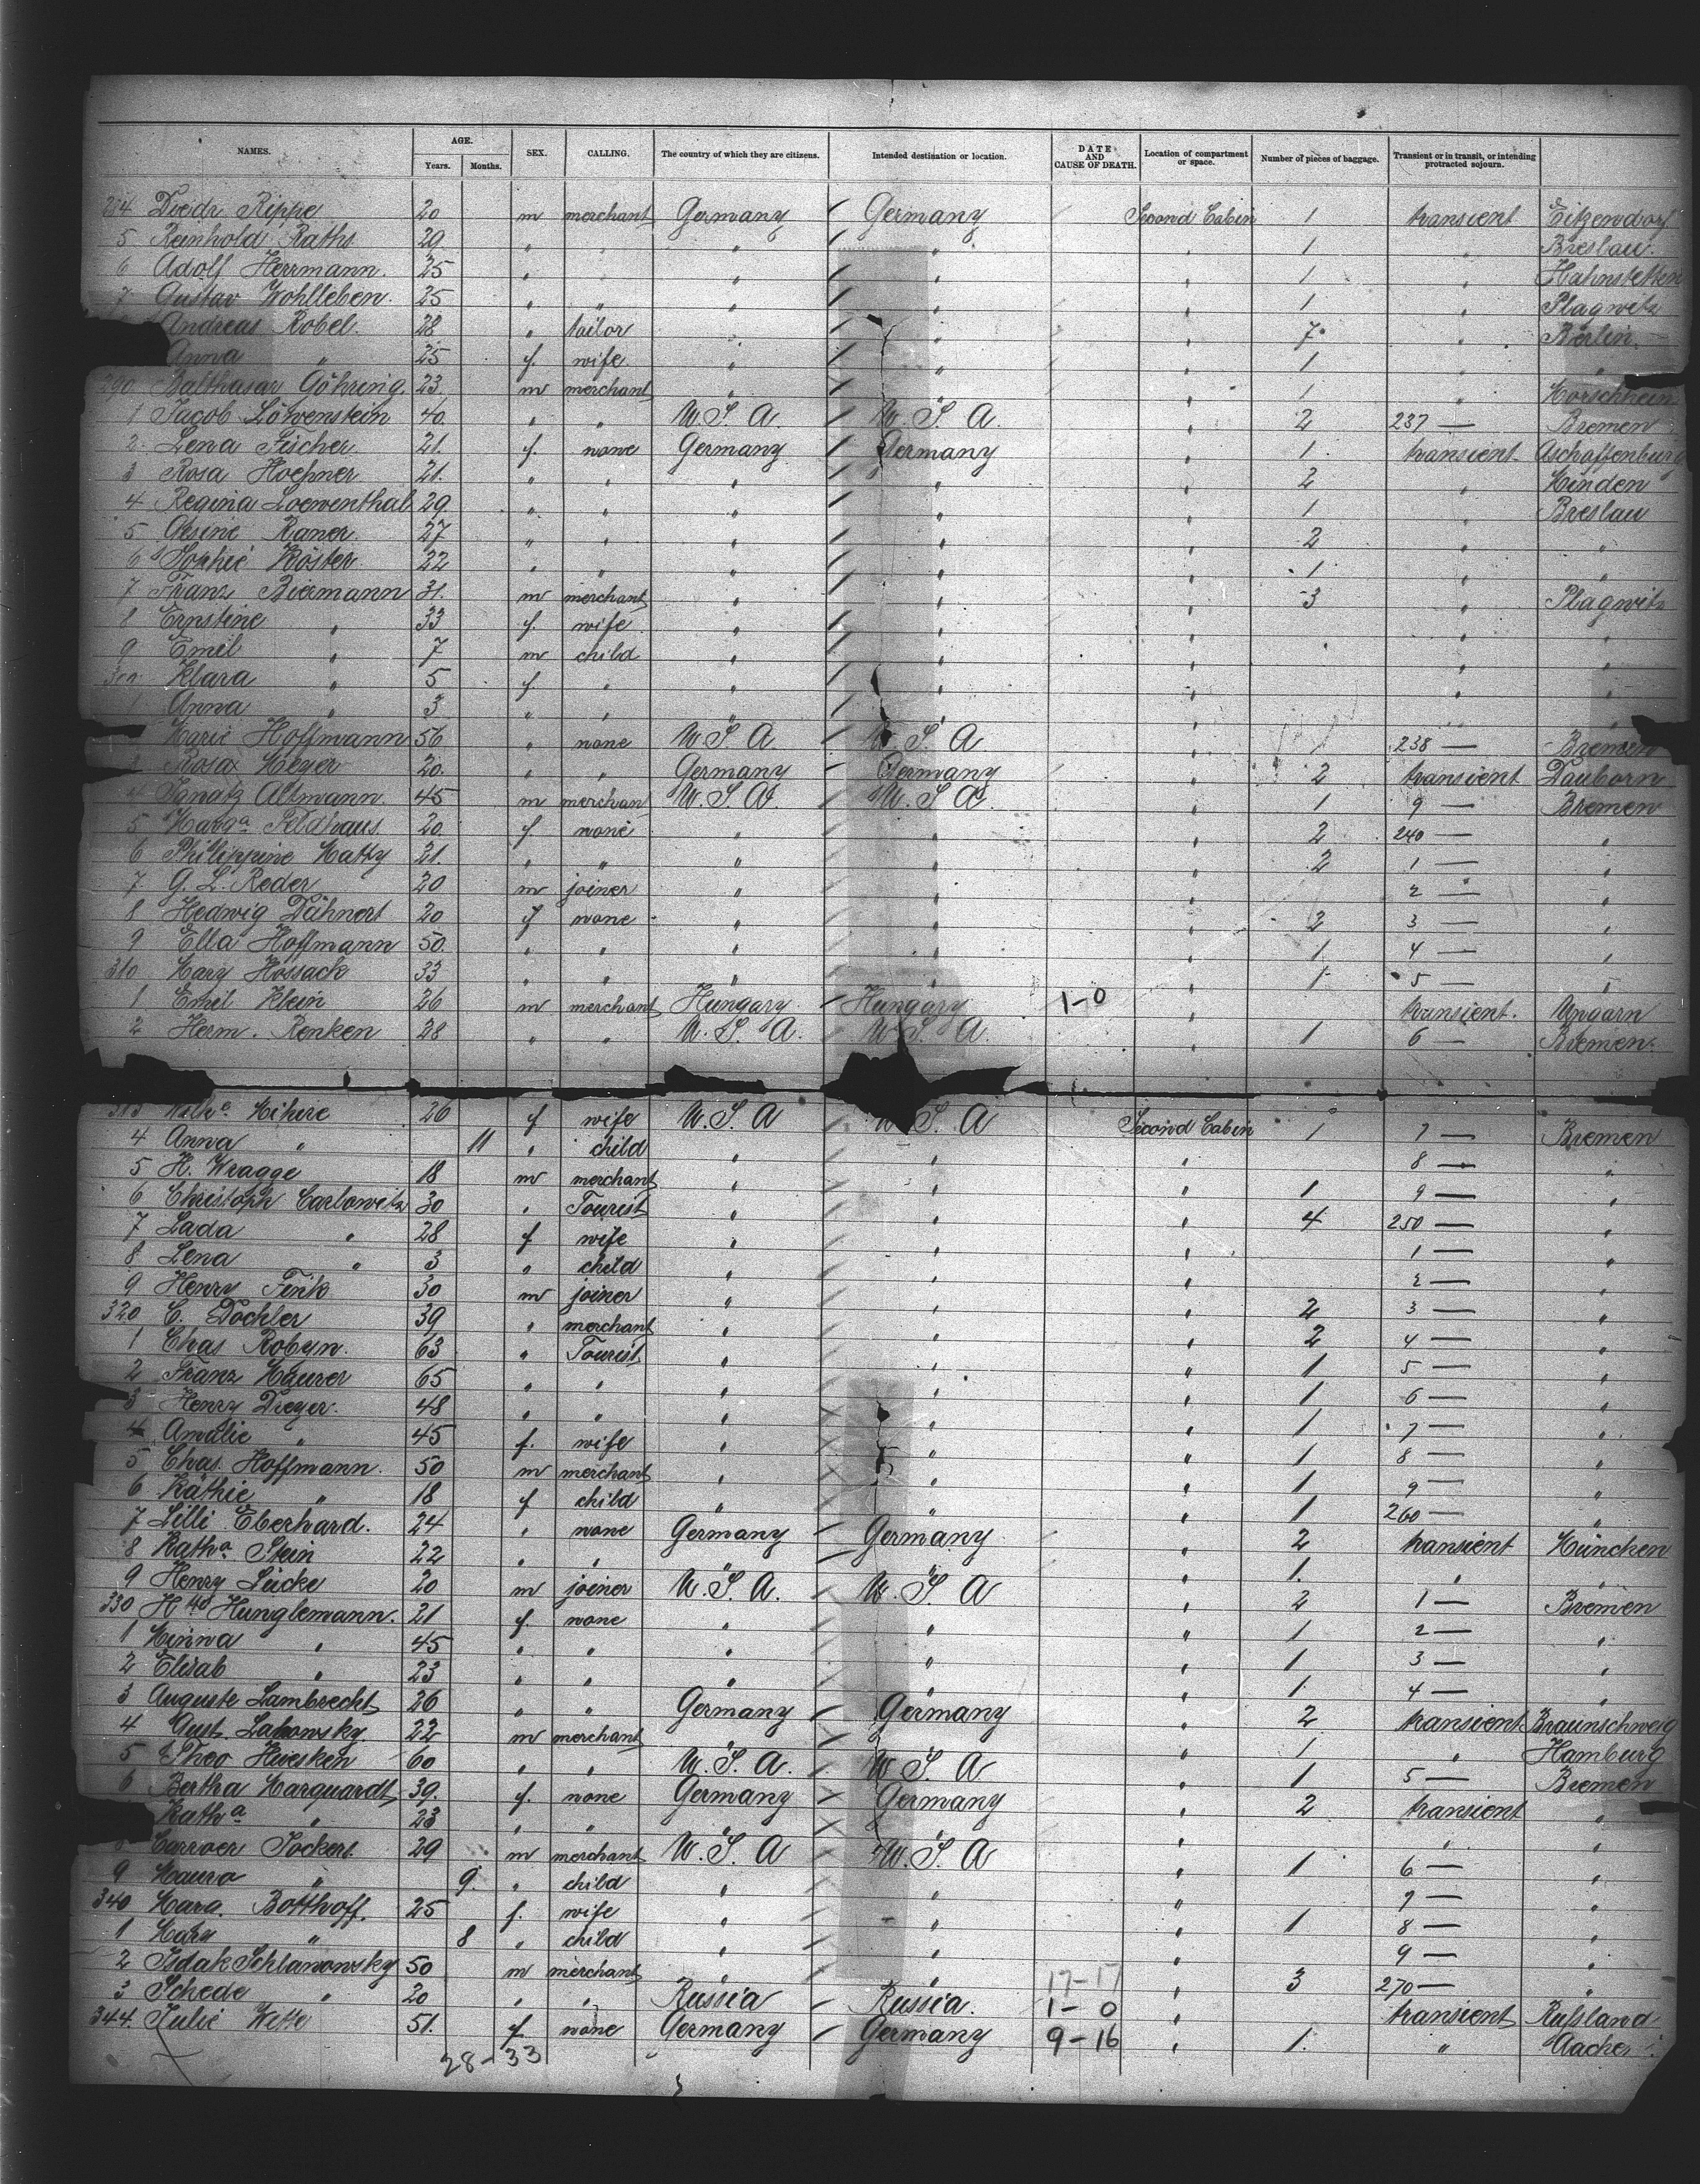 NAMES. AGE. Years. Months. SEX. CALLING. The country of which they are citizens. Intended destination or location. DATE AND CAUSE OF DEATH. Location of compartment or space. Number of pieces of baggage. Transient or in transit, or intending protracted sojourn.
284 Diedr. Rippe 20 m merchant Germany Germany Second Cabin 1 transient Eitzendorf
5 Reinhold Raths 29 " " " " " 1 " Breslau.
6 Adolf Herrmann. 25 " " " " " 1 " Hahnstetten
7 Gustav Wohlleben. 25 " " " " " 1 " Plagwitz
Andreas Robel. 28 " tailor " " " 7 " Berlin.
Anna " 25 f. wife " " " 1 " "
290 Balthasar Göhring. 23 m merchant " " " 1 " Horschheim
1 Jacob Löwenstein 40. " " U. S. A. U. S. A. " 2 237 — Bremen
2 Lena Fischer 21. f. none Germany Germany " 1 transient Aschaffenburg
3 Rosa Hoepner 21. " " " " " 2 " Minden
4 Regina Loewenthal 29 " " " " " 1 " Breslau
5 Gesine Raner 27 " " " " " 2 " "
6 Sophie Köster 22 " " " " " 1 " "
7 Franz Biermann 31. m merchant " " " 3 " Plagwitz
8 Ernstine " 33 f. wife " " " " "
9 Emil " 7 m child " " " " "
300 Klara " 5 f. " " " " " "
1 Anna " 3 " " " " " " "
Marie Hoffmann 56 " none U. S. A U. S. A " 1 238 — Bremen
Rosa Meyer 20. " " Germany Germany " 2 transient Dauborn
4 Ignatz Altmann. 45 m merchant U. S. A. U. S. A. " 1 9 — Bremen
5 Marga Feldhaus 20 f none " " " 2 240 — "
6 Philippine Matty 21. " " " " " 2 1 — "
7 G. L. Reder 20 m joiner " " " 2 — "
8 Hedwig Dähnert 20 f none " " " 2 3 — "
9 Ella Hoffmann 50. " " " " " 1 4 — "
310 Mary Hossack 33 " " " " " 1 5 — "
1 Emil Klein 26 m merchant Hungary Hungary 1-0 " transient. Ungarn
2 Herm. Renken 28 " " U. S. A. U. S. A. " 1 6 — Bremen.
313 26 f wife U. S. A U. S. A Second Cabin 1 7 — Bremen
4 Anna " 11 " child " " " 8 — "
5 H. Wragge 18 m merchant " " " 1 9 — "
6 Christoph Carlowitz 30 " Tourist " " " 4 250 — "
7 Lada " 28 f wife " " " 1 — "
8 Lena " 3 " child " " " 2 — "
9 Henry Fink 30 m joiner " " " 2 3 — "
320 C. Dochler 39 " merchant " " " 2 4 — "
1 Chas Robyn. 63 " Tourist " " " 1 5 — "
2 Franz Maurer 65 " " " " " 1 6 — "
3 Henry Dreyer. 48 " " " " " 1 7 — "
4 Amalie " 45 f. wife " " " 1 8 — "
5 Chas. Hoffmann. 50 m merchant " " " 1 9 — "
6 Käthie " 18 f child " " " 1 260 — "
7 Lilli Eberhard. 24 " none Germany Germany " 2 transient München
8 Katha Stein 22 " " " " " 1. " "
9 Henry Lücke 20 m joiner U. S. A. U. S. A " 2 1 — Bremen
330 Hunglemann. 21 f. none " " " 1 2 — "
1 Minna " 45 " " " " " 1 3 — "
2 Elisab " 23 " " " " " 1 4 — "
3 Auguste Lambrecht 26 " " Germany Germany " 2 transient Braunschweig
4 Gust. Lakowsky 22 m merchant " " " 1 " Hamburg
5 Theo Huesken 60 " " U. S. A. U. S. A " 1 5 — Bremen
6 Bertha Marquardt 39. f. none Germany Germany " 2 transient "
Katha " 23 " " " " " " "
8 Jockers 29 m merchant U. S. A U. S. A " 1 6 — "
9 " 9. " child " " " 7 — "
340 Mara. Botthoff. 25 f. wife " " " 1 8 — "
1 Mary " 8 " child " " " 9 — "
2 Isdak Schlanowsky 50 m merchant " " 17-17 " 3 270 — "
3 Schede " 20 " " Russia Russia. 1-0 " transient Rußland
344. Julie Wette 51. f none Germany Germany 9-16 " 1. " Aachen
28-33